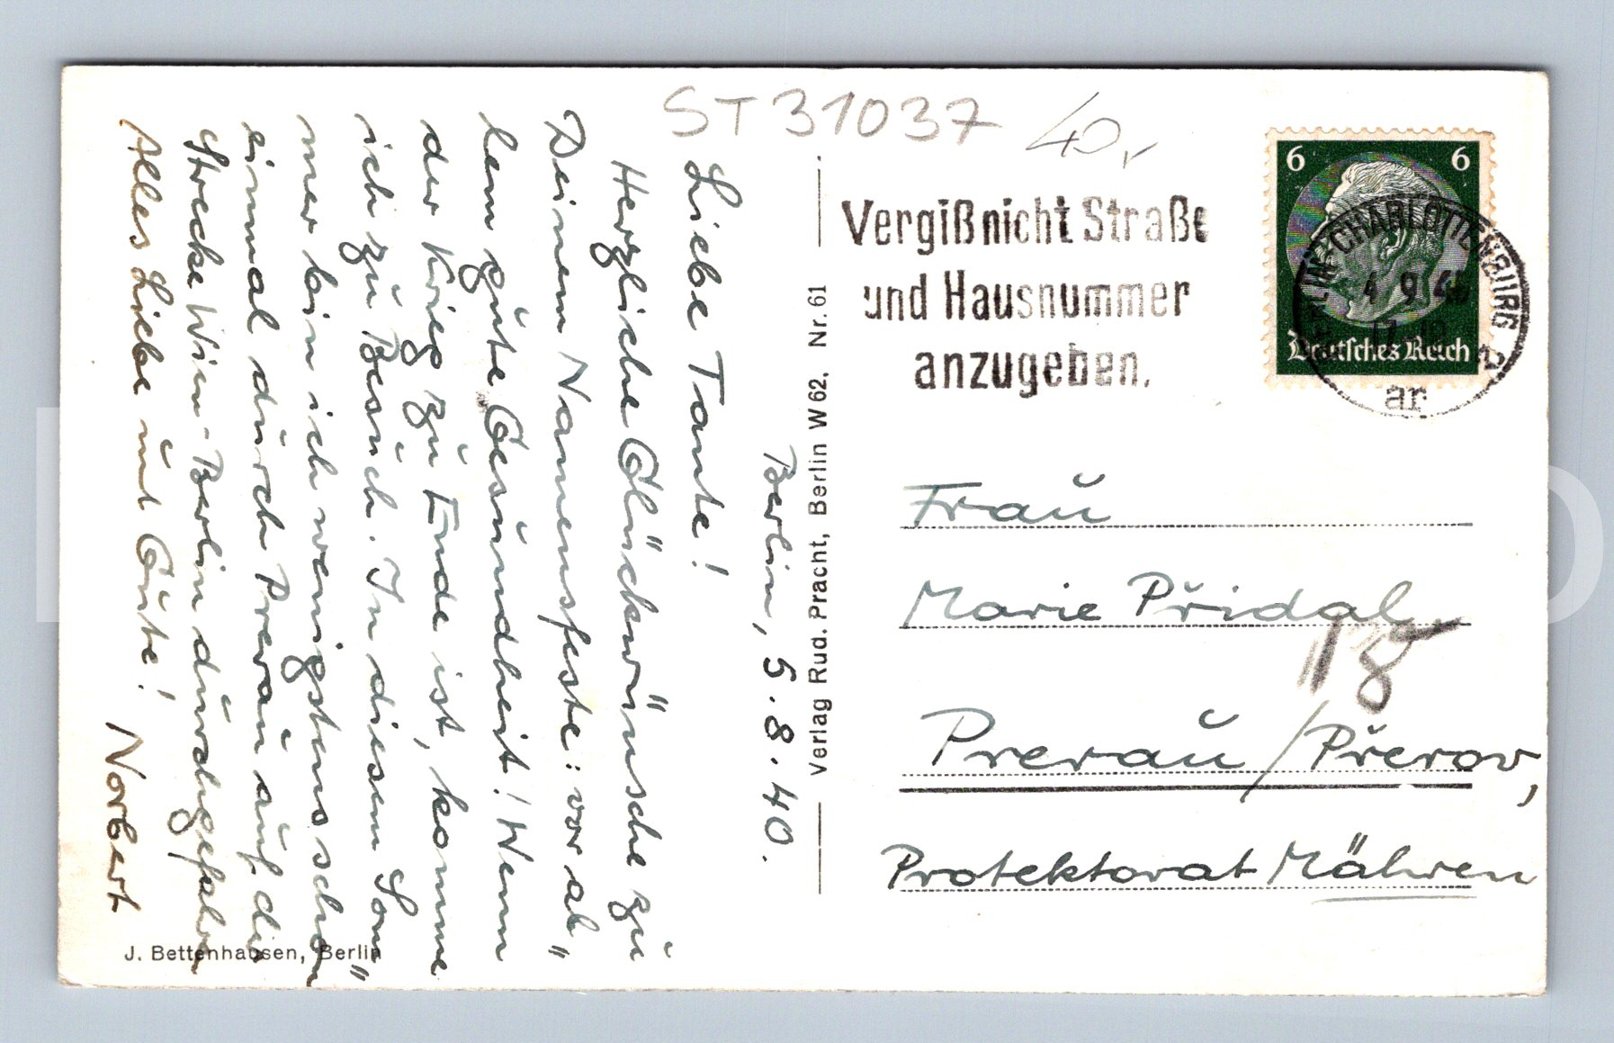 ST 31037
40,-
Berlin, 5.8.40.
Liebe Tante!
Herzliche Glückwünsche zu
Deinem Namensfeste: vor al"
lem gute Gesundheit! Wenn
der Krieg zu Ende ist, komme
ich zu Besuch. In diesem Som"
mer bin ich wenigstens schon
einmal durch Prerau auf die
Strecke Wien-Berlin durchgefahren
Alles Liebe und Gute!
Norbert
J. Bettenhausen, Berlin
Verlag Rud. Pracht, Berlin W 62, Nr. 61
Vergiß nicht Straße
und Hausnummer
anzugeben.
6 6
Deutsches Reich
BERLIN-CHARLOTTENBURG 2
4 9
ar
Frau
Marie Přidal
18
Prerau/Přerov,
Protektorat Mähren